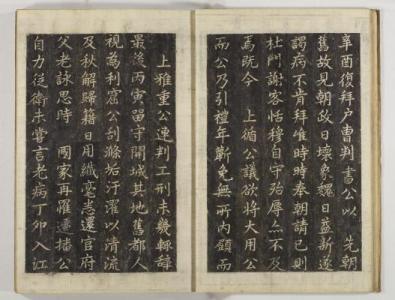 辛酉復拜戶曹判書公以 先朝
舊故見朝政日壞象魏日益新遂
謁病不肯拜唯時時奉朝請已則
杜門謝客恬穆自守殆辱亦不及
焉旣今 上循公議欲將大用公
而公乃引禮年蘄免無所內顧而
上雅重公連判工刑未幾輒辭
最後丙寅留守開城其地舊都人
視爲利窟公刮滌垢汙濯以清流
及秋解歸籍日用纖毫悉還官府
父老詠思時 國家再罹連播公
自力從衛未嘗言老病丁卯入江